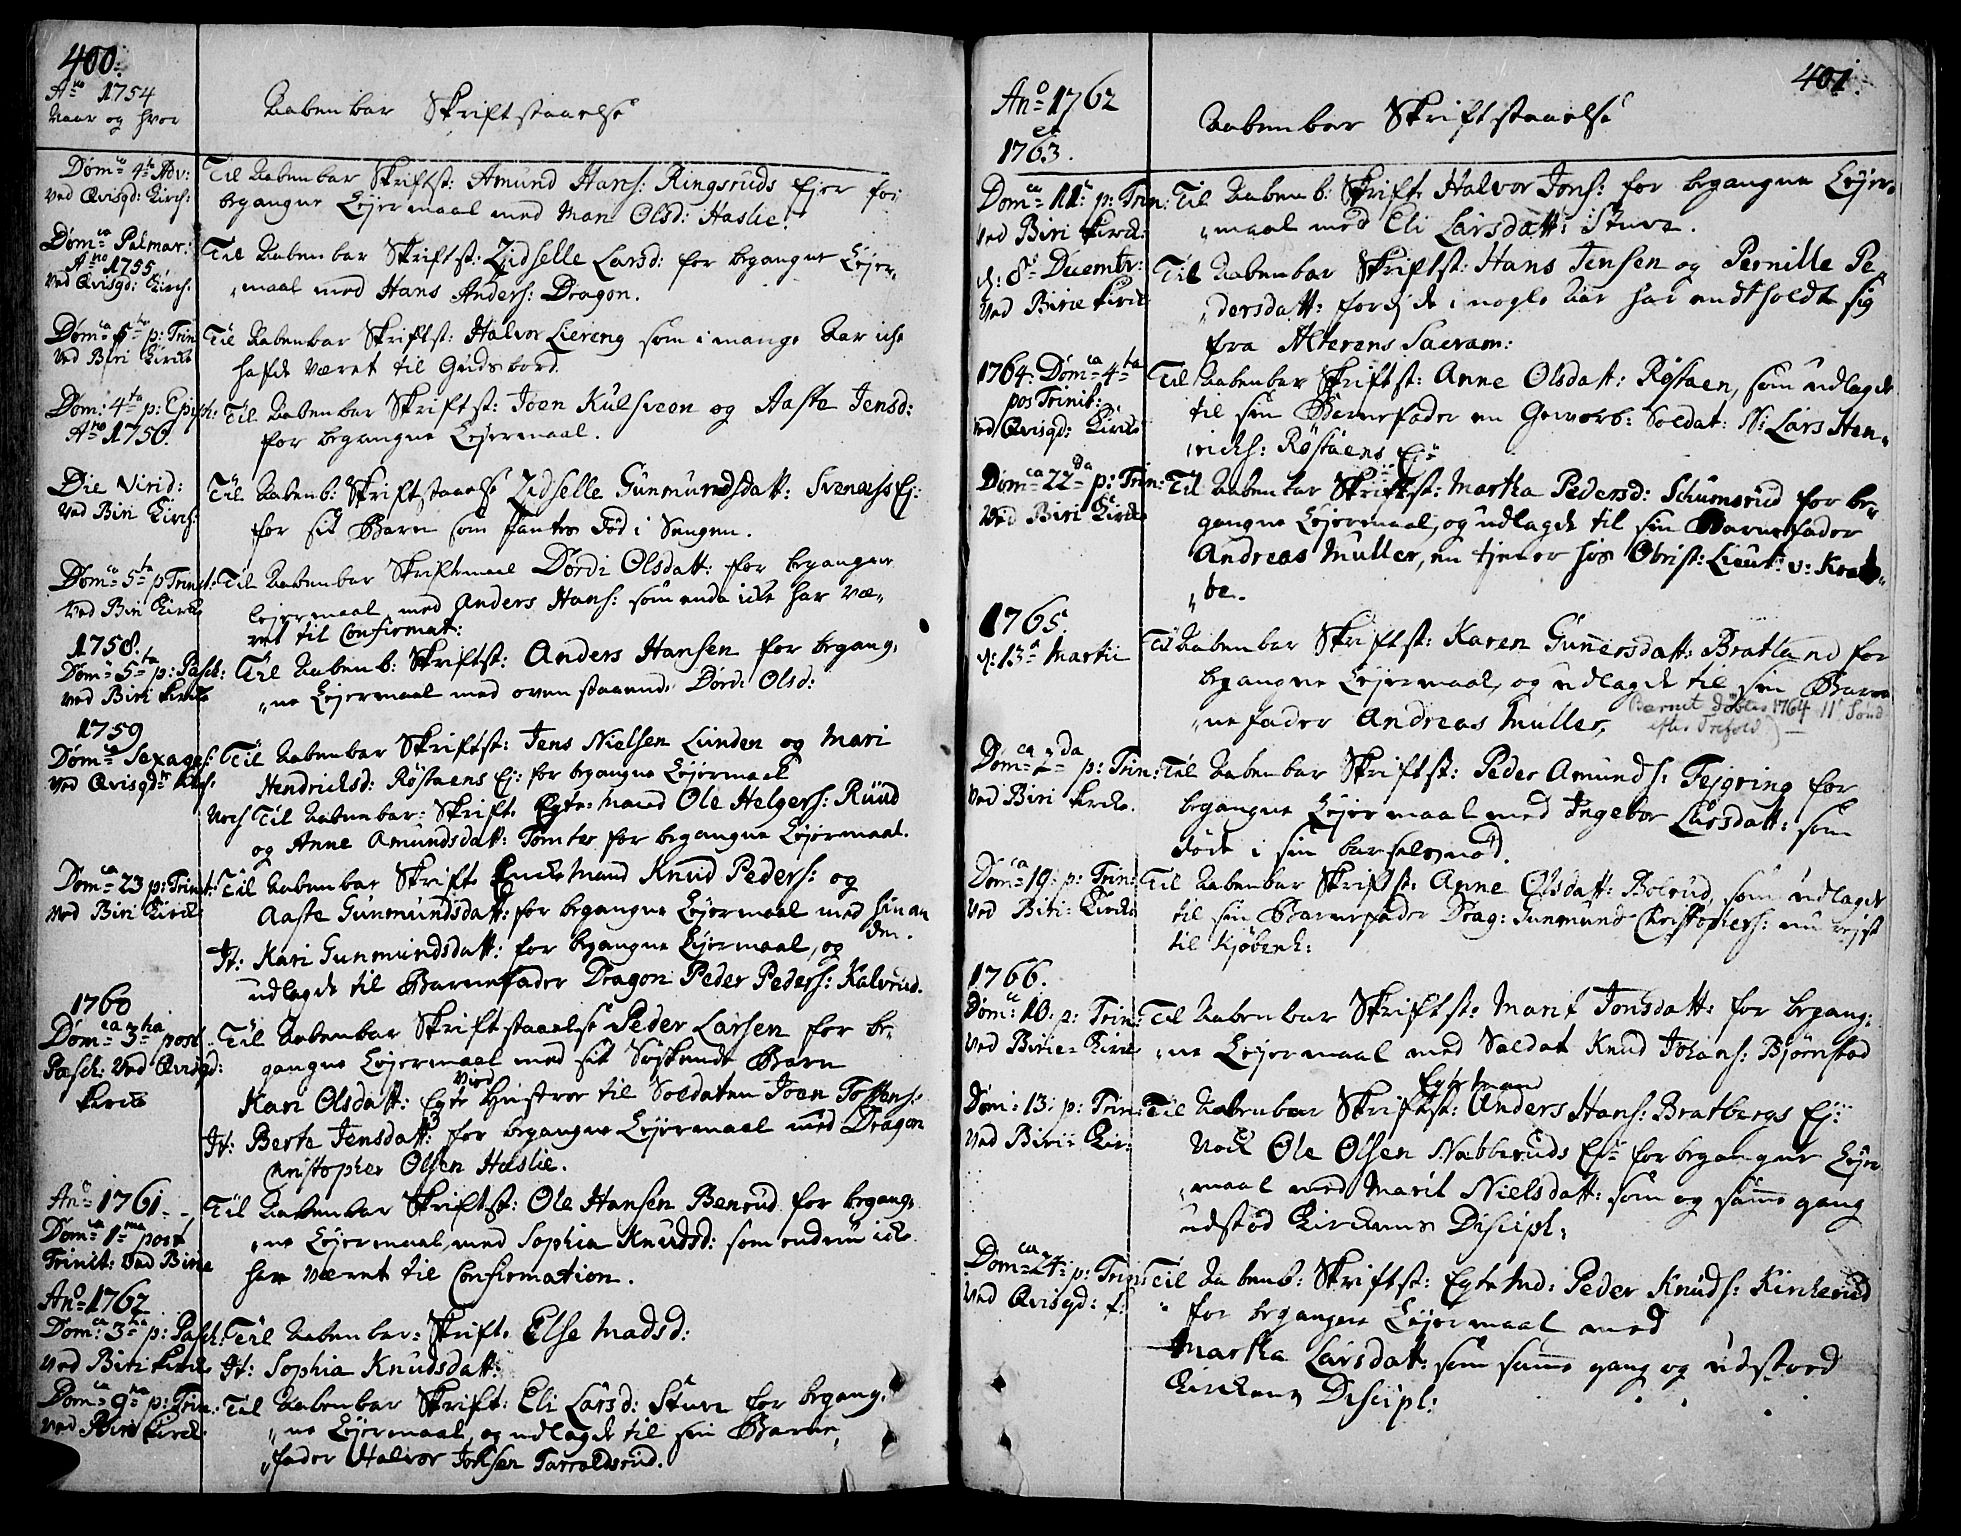 400.
Ano 1754
Naar og hvor
Aabenbar Skriftstaaelse
Dom: 4ta Adv:
ved Qvisgd: Kirch:
Til Aabenbar Skriftst: Amund Hans: Ringsruds Ejer for
begangne Lejermaal med Mari Olsd: Haslie.
Domca Palmar:
Ano 1755
ved Qvisgd: Kirch:
Til Aabenbar Skriftst: Zidselle Larsd: for begangne Lejer-
maal med Hans Anders: Dragon.
Domca 6ta p: Trin
ved Biri Kircke
Til Aabenbar Skriftst: Halvor Liereng som i mange Aar iche
hafde været til Guds bord.
Dom: 4ta p: Epiph:
Ano 1756.
Til Aabenbar Skriftst: Joen Kulsveen og Aaste Jensd:
for begangne Lejermaal.
Die Virid:
ved Biri Kirch:
Til Aabenb: Skriftstaaelse Zidselle Gunmundsdatt: Svenæss Ej:
for sit Barn som fantes død i Sengen.
Domca 5ta p Trinit:
ved Biri Kircke
Til Aabenbar Skriftemaal Dordi Olsdatt: for begangne
Lejermaal med Anders Hans: som enda icke har væ-
ret til Confirmat:
1758.
Domca 5ta p: Pasch:
ved Biri Kircke
Til Aabenb: Skriftst: Anders Hansen for begang-
ne Lejermaal med ovenstaaende Dordi Olsd:
1759
Domca Sexages:
ved Qvisgd: Kirch:
Til Aabenbar Skriftst: Jens Nielsen Lunden og Mari
Hendricksd: Røstaens Ej: for begangne Lejermaal
Noch Til Aabenbar: Skrift. Egte-Mand Ole Helgers: Ruud
og Anne Amundsdatt: Tomter for begangne Lejermaal.
Domca 23 p: Trinit:
ved Biri Kirche
Til Aabenbar Skrift. Enckemand Knud Peders: og
Aaste Gunmundsdatt: for begangne Lejermaal med hinan
den.
It: Kari Gunmundsdatt: for begangne Lejermaal, og
udlagde til Barnefader Dragon Peder Peders: Kalvrud.
1760
Domca 3tia post
Pasch: ved Qvisgd:
Kircke
Til Aabenbar Skriftstaaelse Peder Larsen for be-
gangne Lejermaal med sit Søskende Barn
Kari Olsdatt: Egte Hustroe til Soldaten Joen Tostens:
It: Berte Jensdatt: for begangne Lejermaal med Dragon
Christopher Olsen Haslie.
Ano 1761.
Domca 1ma post
Trinit: ved Birie
Til Aabenbar Skriftst: Ole Hansen Benrud for begang-
ne Lejermaal, med Sophia Knudsd: som endnu icke
har været til Confirmation.
Ano 1762
Domca 3tia p: Pasch:
ved Biri Kircke
Til Aabenbar: Skrift. Else Madsd:
It: Sophia Knudsdatt:
Domca 9na p: Trin:
ved Biri Kirck:
Til Aabenbar Skrift: Eli Larsd: Stuve for begang-
ne Lejermaal, og udlagde til sin Barne
fader Halvor Joensen Tarraldsrud.
401.
Ano 1762
et
1763.
Aabenbar Skriftstaaelse
Domca 11te p: Trin:
ved Biri Kirck:
Til Aabenb: Skrift. Halvor Jons: for begangne Lejer-
maal med Eli Larsdatt: Stuve.
d: 8de Decembr:
ved Birie Kircke
Til Aabenbar Skriftst: Hans Jensen og Pernille Pe-
dersdatt: fordj de i nogle Aar har endtholdt sig
fra Alterens Sacram:
1764: Domca 4ta
post Trinit:
ved Qvisgd: Kircke
Til Aabenbar Skriftst: Anne Olsdatt: Røstaen, som udlagde
til sin Barnefader en Gevorb: Soldat: N: Lars Hen-
ricks: Røstaens Ej:
Domca 22da p: Trin:
ved Biri Kircke
Til Aabenbar Skriftst: Martha Pedersd: Schumsrud for be-
gangne Lejermaal, og udlagde til sin Barnefader
Andreas Muller, en tjener hos Obrist: Lieut: v: Krab-
be.
1765.
d: 13de Martii
Til Aabenbar Skriftst: Karen Gunersdatt: Bratland for
begangne Lejermaal, og udlagde til sin Bar-
nefader Andreas Müller,
Barnet døbtes 1764 11' Sønd
efter Trefold.)
Domca 2da p: Trin:
ved Biri Kircke.
Til Aabenbar Skriftst: Peder Amunds: Fejgring for
begangne Lejermaal med Ingebor Larsdatt: som
døde i sin barselsnød.
Domca 19: p: Trin:
ved Biri-Kircke
Til Aabenbar Skriftst: Anne Olsdatt: Bolrud, som udlagde
til sin Barnefader Drag: Gunmund Christophers: nu rejst
til Kjøbenh:
1766.
Domca 10. p: Trin:
ved Birie-Kircke
Til Aabenbar Skriftst: Marit Jonsdatt: for begang-
ne Lejermaal med Soldat Knud Johans: Bjørnstad
Dom: 13: p: Trin:
ved Birie-Kir:
Egte Mand
Til Aabenbar Skriftst: Anders Hans: Bratbergs Ej:
Noch Ole Olsen Nabberuds Ej: for begangne Lejer
maal med Marit Nielsdatt: som og samme gang
udstod Kirckens Discipl:
Domca 24: p: Trin:
ved Qvisgd: k:
Til Aabenb: Skriftst: Egte Md: Peder Knuds: Kircherud
for begangne Lejermaal med
Martha Larsdatt: som samme gang og udstoed
Kirckens Discipl: